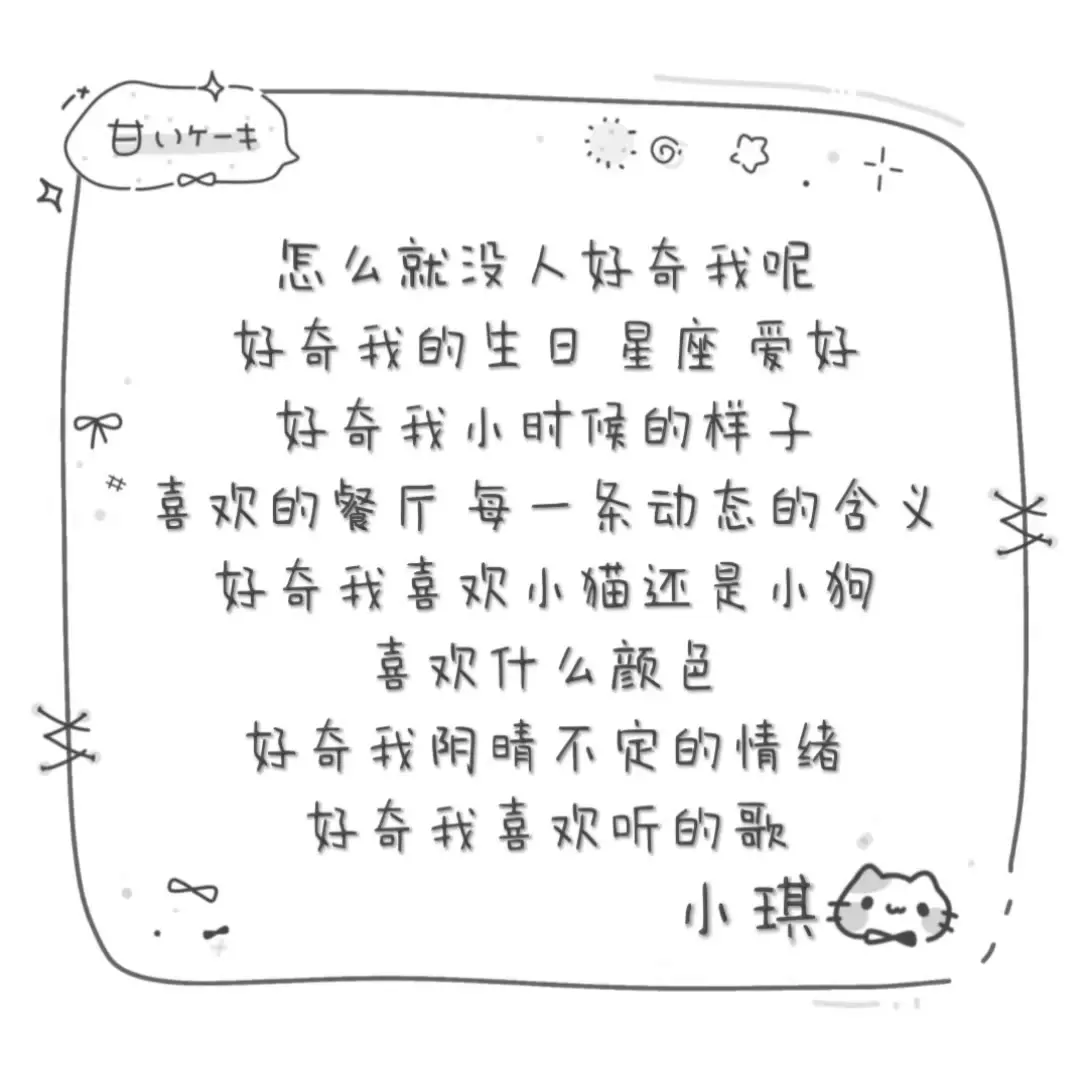 甘いケーキ
怎么就没人好奇我呢
好奇我的生日 星座 爱好
好奇我小时候的样子
喜欢的餐厅 每一条动态的含义
好奇我喜欢小猫还是小狗
喜欢什么颜色
好奇我阴晴不定的情绪
好奇我喜欢听的歌
小琪